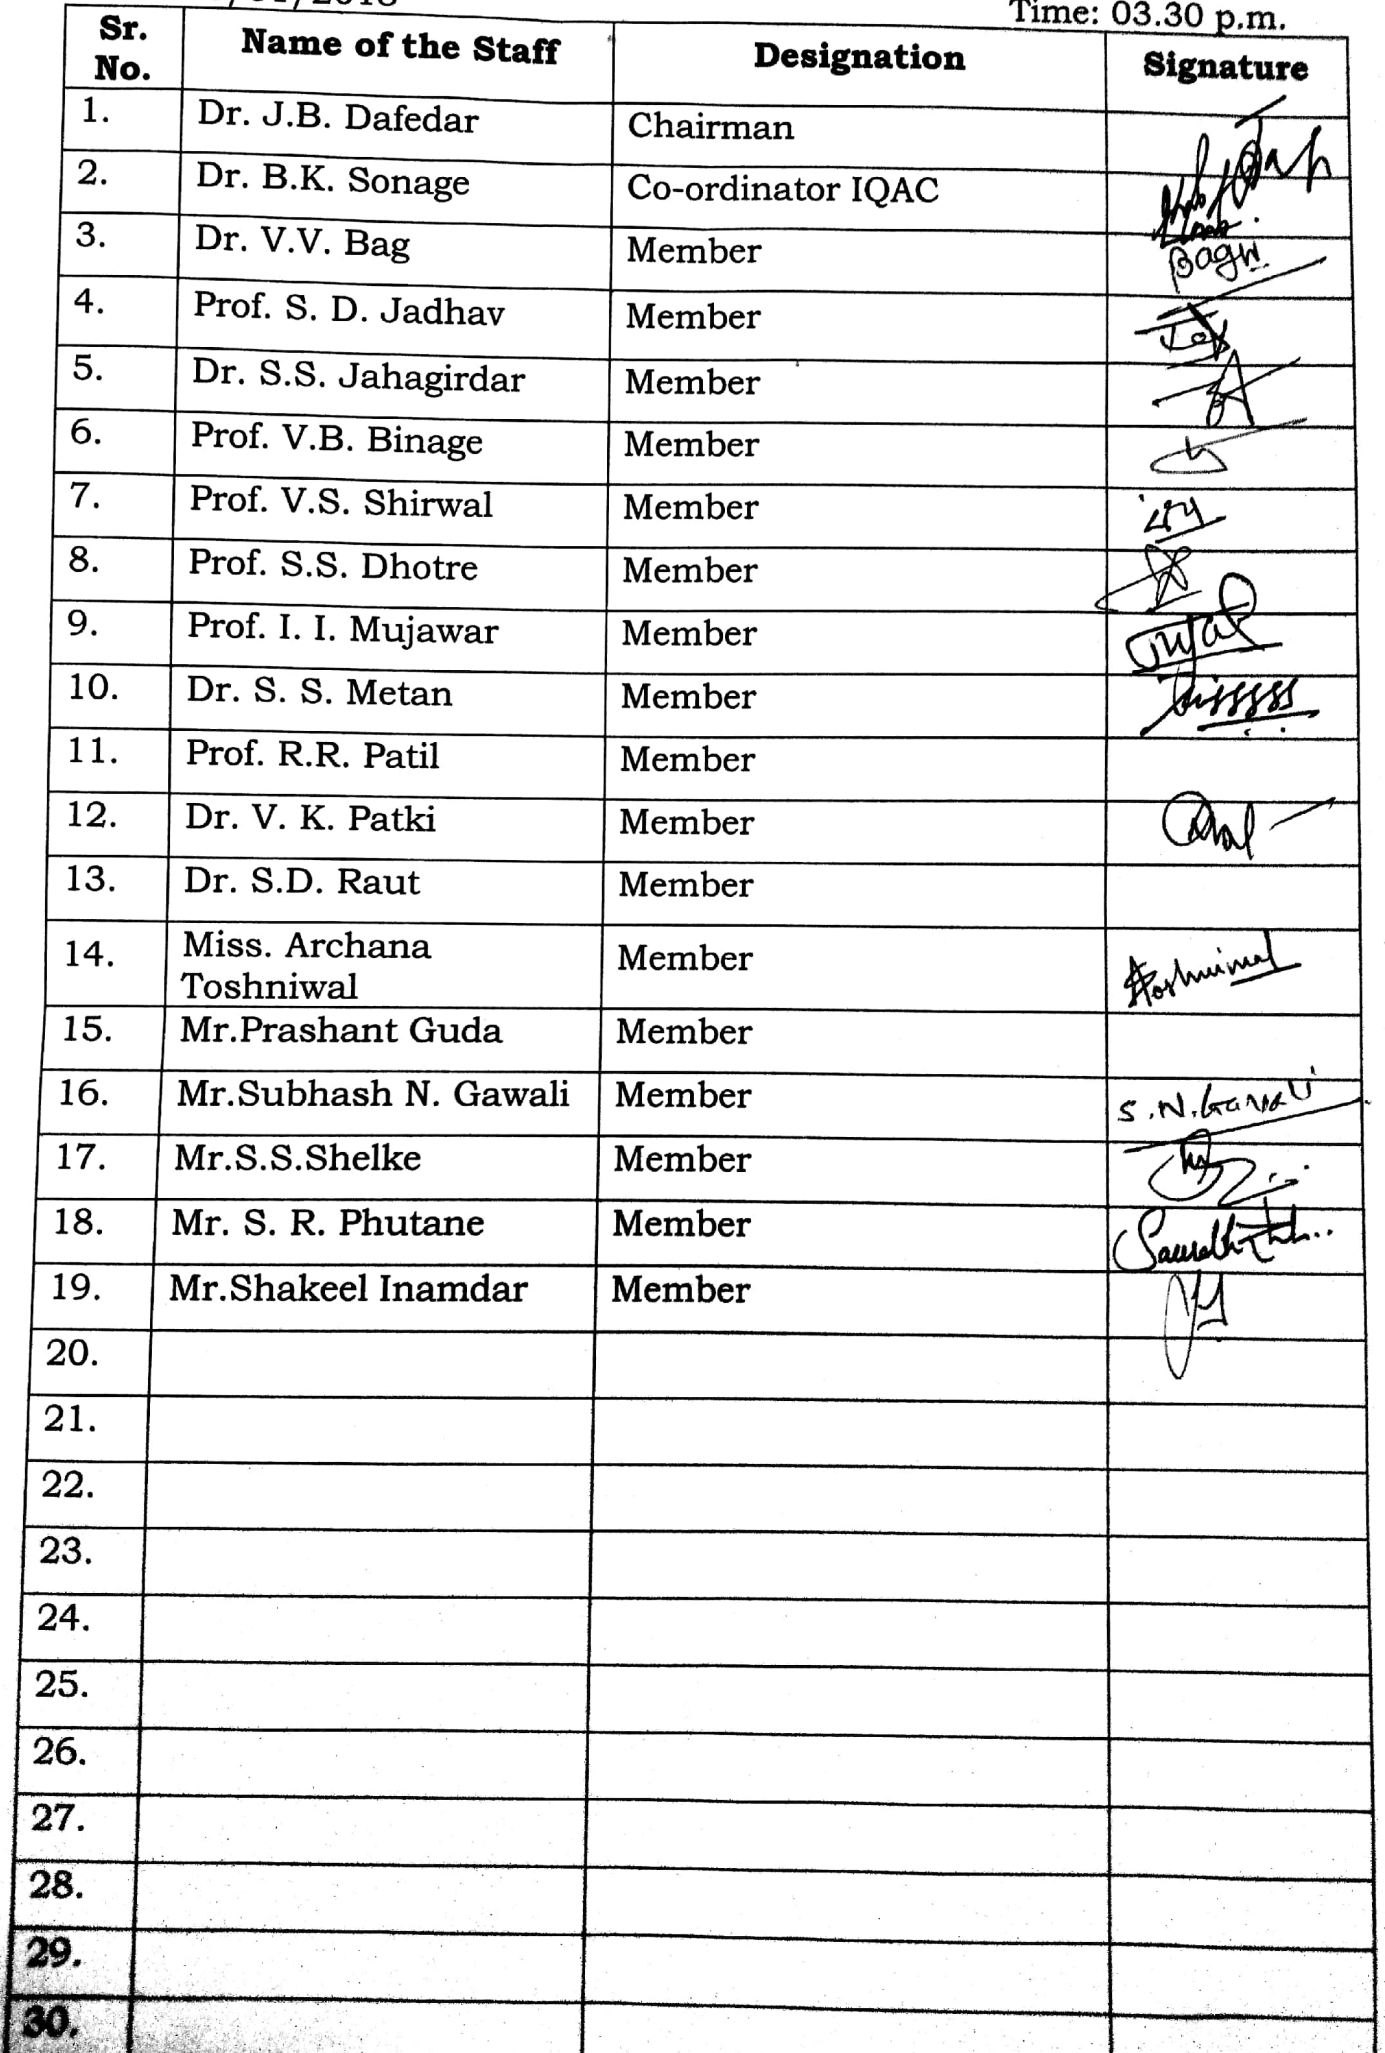 Time: 03.30 p.m.
Sr. No. Name of the Staff Designation Signature
1. Dr. J.B. Dafedar Chairman
2. Dr. B.K. Sonage Co-ordinator IQAC
3. Dr. V.V. Bag Member
4. Prof. S. D. Jadhav Member
5. Dr. S.S. Jahagirdar Member
6. Prof. V.B. Binage Member
7. Prof. V.S. Shirwal Member
8. Prof. S.S. Dhotre Member
9. Prof. I. I. Mujawar Member
10. Dr. S. S. Metan Member
11. Prof. R.R. Patil Member
12. Dr. V. K. Patki Member
13. Dr. S.D. Raut Member
14. Miss. Archana Toshniwal Member
15. Mr.Prashant Guda Member
16. Mr.Subhash N. Gawali Member S.N.Gawali
17. Mr.S.S.Shelke Member
18. Mr. S. R. Phutane Member
19. Mr.Shakeel Inamdar Member
20.
21.
22.
23.
24.
25.
26.
27.
28.
29.
30.